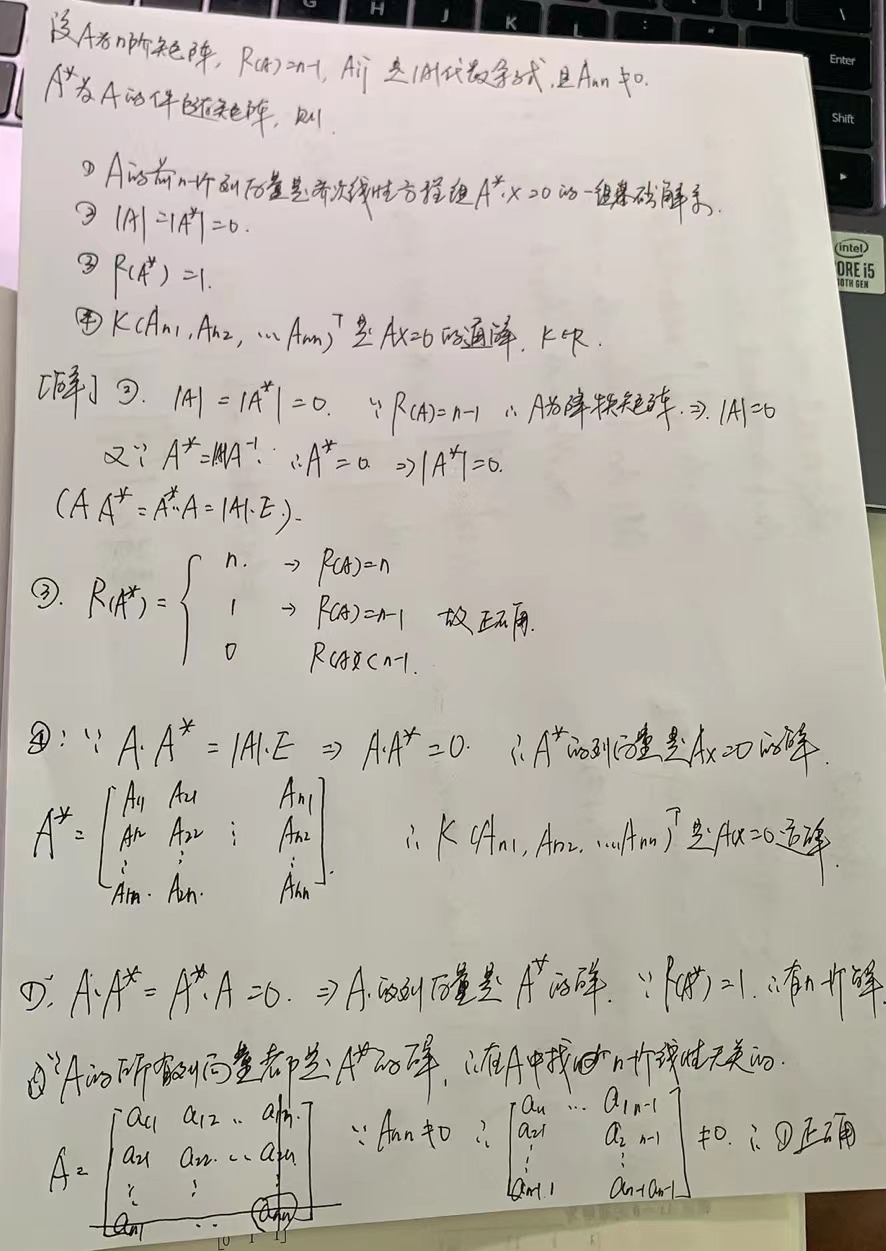 G
H
J
K
L
Enter
Shift
intel
CORE i5
10TH GEN
设A为n阶矩阵, R(A)=n-1, Aij 是|A|代数余子式,且Ann≠0.
A*为A的伴随矩阵, 则.
① A的前n-1个列向量是齐次线性方程组A*·x=0的一组基础解系.
② |A|=|A*|=0.
③ R(A*)=1.
④ K(An1, An2, … Ann)ᵀ 是 AX=0的通解, K∈R.
[解] ②. |A|=|A*|=0. ∵ R(A)=n-1 ∴ A为降秩矩阵. ⇒ |A|=0
又∵ A*=|A|A⁻¹. ∴A*=0 ⇒|A*|=0.
(A A*=A*·A=|A|·E).
③. R(A*)= { n. → R(A)=n
1 → R(A)=n-1 故正确.
0 R(A)<n-1.
④: ∵ A·A*=|A|·E ⇒ A·A*=0. ∴A*的列向量是Ax=0的解.
A*= [ A11 A21 An1
A12 A22 ⋮ An2 ∴ K(An1, An2, …Ann)ᵀ是Ax=0通解.
⋮ ⋮ ⋮
A1n. A2n. Ann ].
①: A·A*=A*·A=0. ⇒A的列向量是A*的解. ∵R(A*)=1. ∴有n-1个解
∵A的所有列向量都是A*的解, ∴在A中找n-1个线性无关的.
A= [ a11 a12 .. a1n. ∵Ann≠0 ∴ [ a11 … a1n-1
a21 a22. … a2n a21 a2 n-1 ≠0. ∴①正确
⋮ ⋮ ⋮ ⋮
an1 .. ann ] an-1 1 an-1 n-1 ]
[0 1 1]